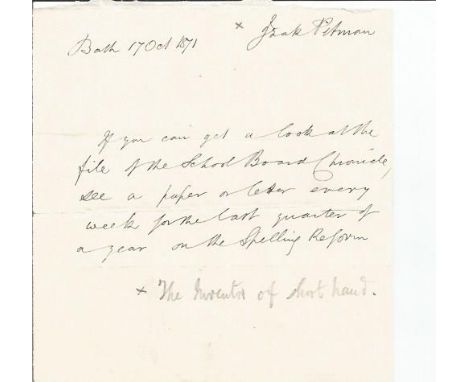 Bath 17 Oct 1871
× Isaac Pitman
If you can get a look at the
file of the School Board Chronicle,
see a paper or letter every
week for the last quarter of
a year on the Spelling Reform
× The Inventor of short hand.